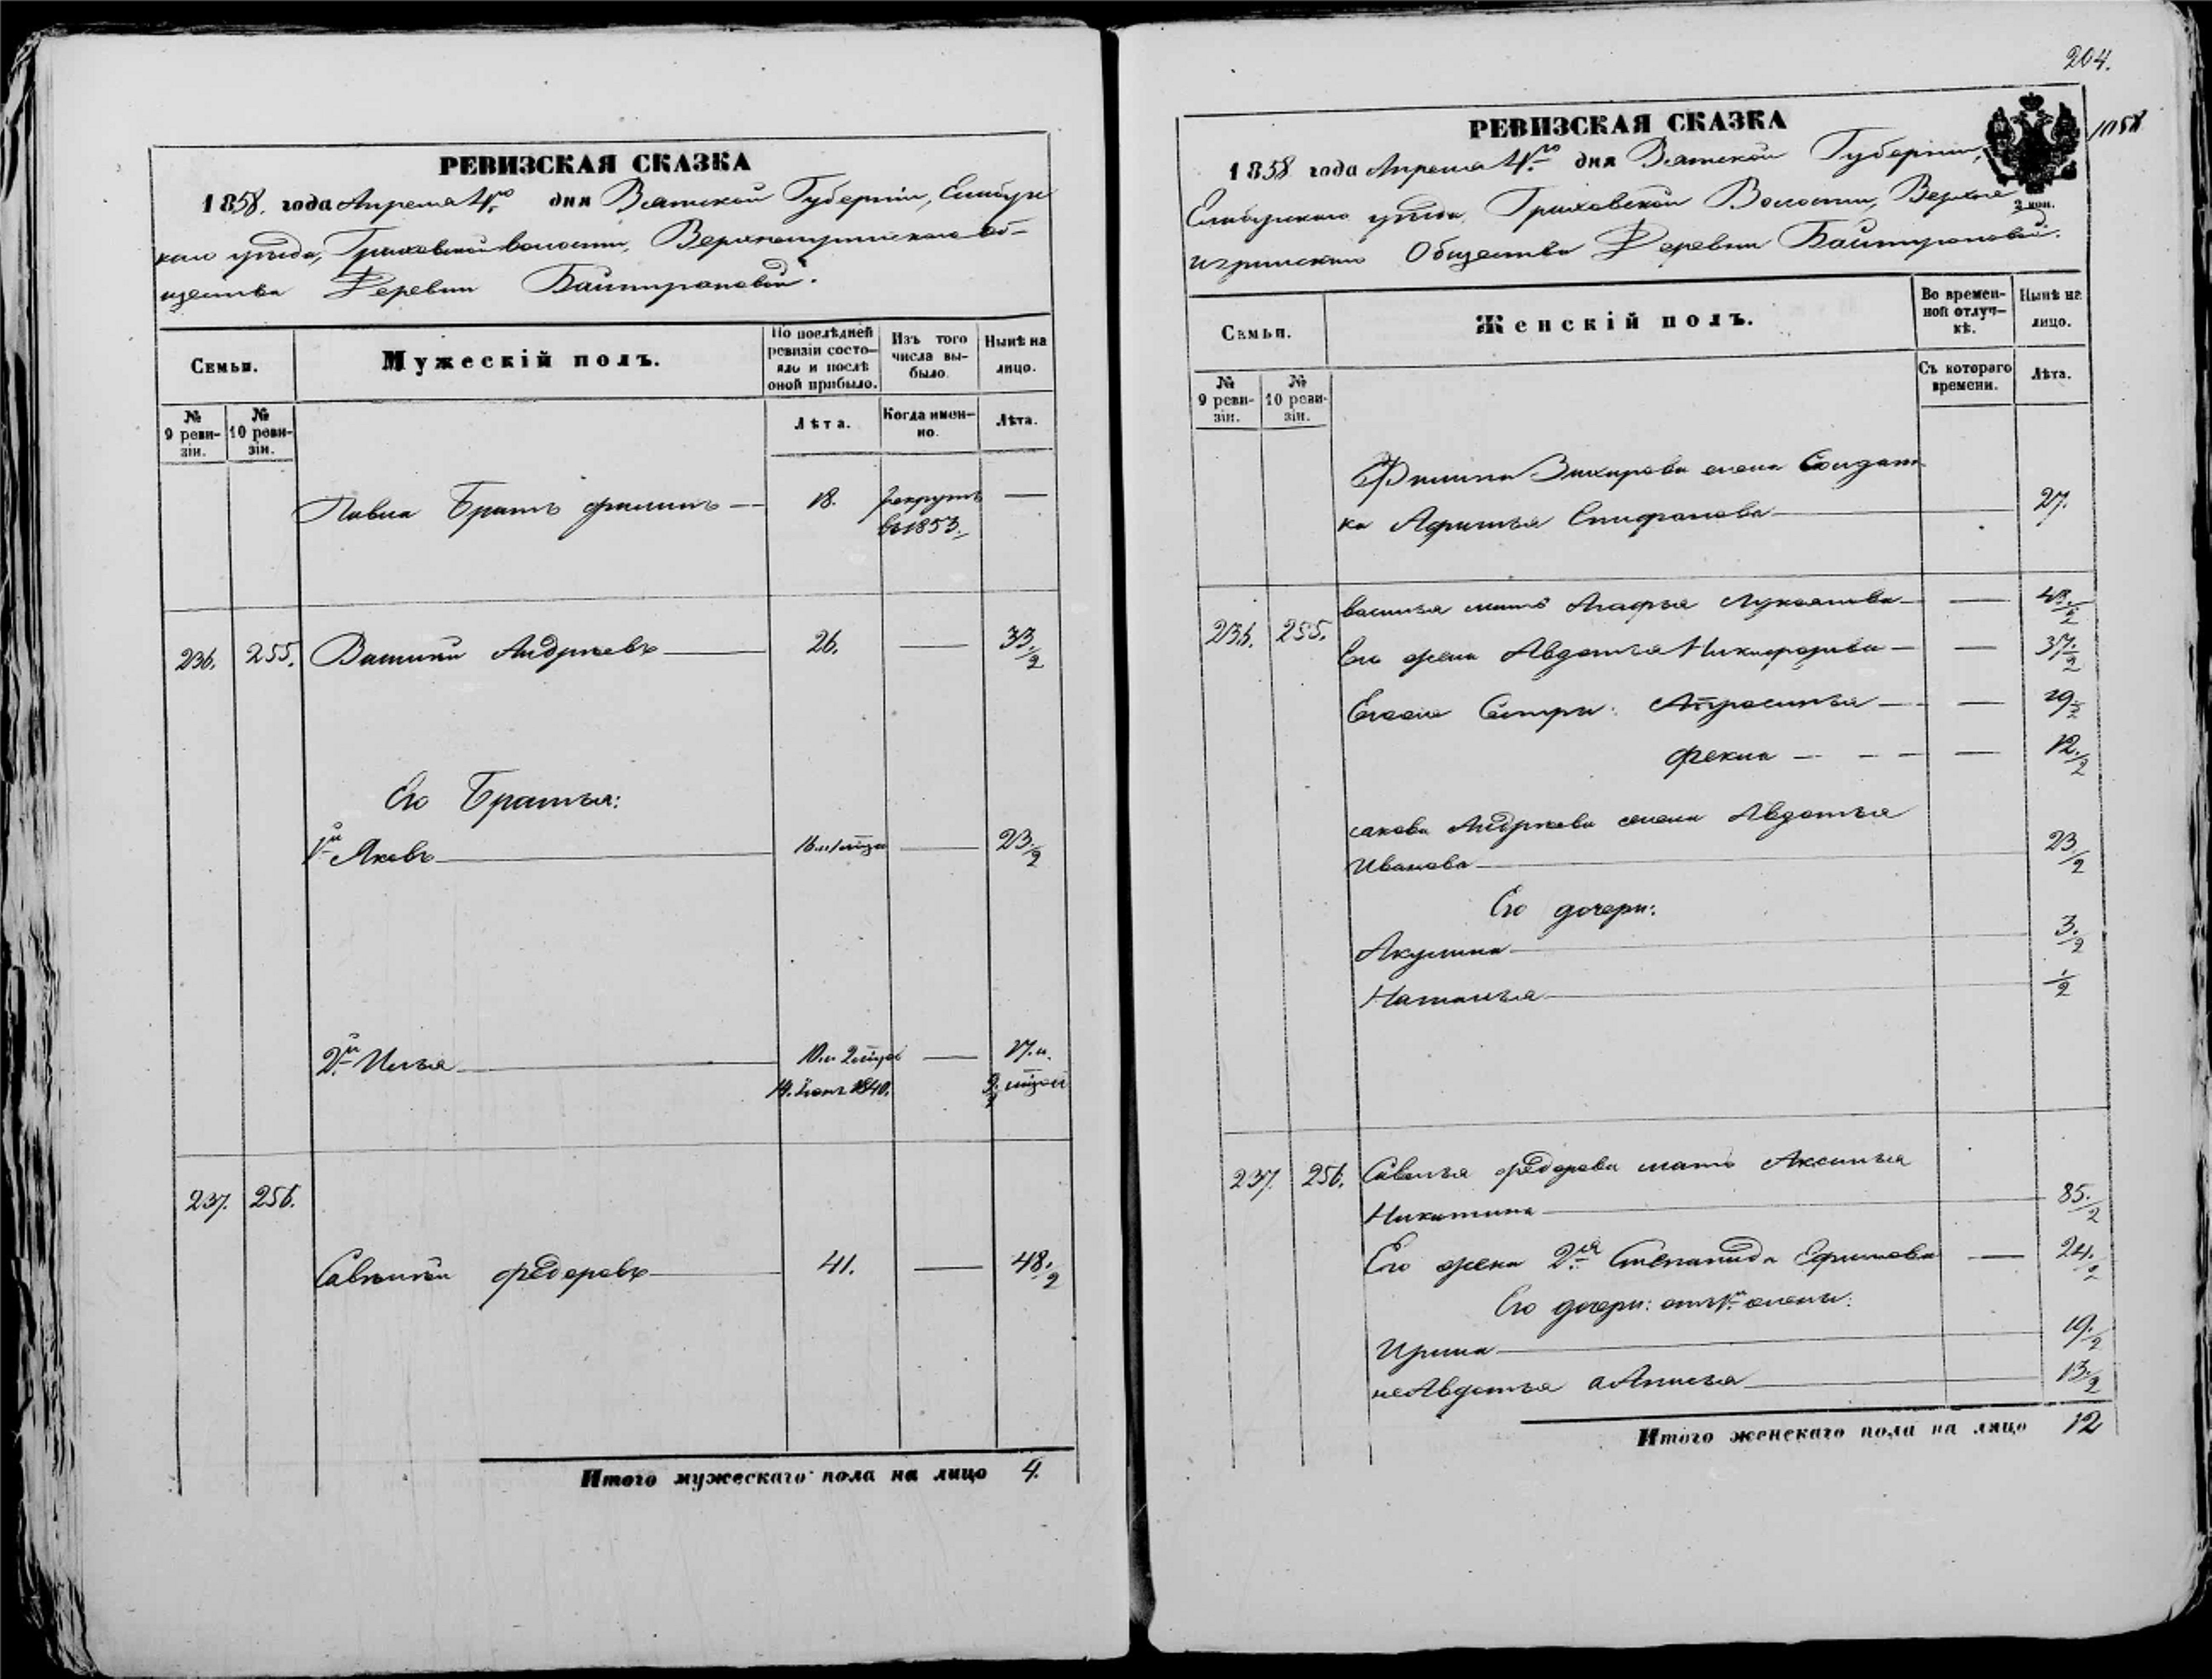 РЕВИЗСКАЯ СКАЗКА
1858. года Апреля дня Вятской Губерніи, Елабужс
каго уѣзда, волости, Верхоигринскаго об-
щества Деревни Баймурановой.
Семьи.
Мужескій полъ.
По послѣдней ревизіи состояло и послѣ оной прибыло.
Изъ того числа выбыло.
Нынѣ на лицо.
№ 9 ревизіи.
№ 10 ревизіи.
Лѣта.
Когда именно.
Лѣта.
Павла братъ филипъ — 18. рекрутъ —
въ 1853.
236. 255. Василій Андреевъ 26. — 33. 1/2
Его Братья:
1й Яковъ 16. — 23. 1/2
2й Илья —
1840.
237. 256.
Савелій федоровъ 41. — 48. 1/2
Итого мужескаго пола на лицо 4.
204.
РЕВИЗСКАЯ СКАЗКА
1858 года Апреля дня Вятской Губерніи,
2 коп.
Елабужскаго уѣзда, Волости, Верхо
игринскаго Общества Деревни Баймурановой.
Семьи.
Женскій полъ.
Во временной отлучкѣ.
Нынѣ на лицо.
№ 9 ревизіи.
№ 10 ревизіи.
Съ котораго времени.
Лѣта.
Филипа жена Солдат
ка 27.
236. 255. Василья мать Агафья Лукоянова —
Его жена Авдотья Никифорова — — 37. 1/2
Сестры: —
фекла — — — — 12. 1/2
Якова Андреева жена Авдотья
Иванова 23 1/2
Его дочери:
Акулина 3. 1/2
Наталья 1/2
237. 256. Савелья федорова мать Аксинья
Никитина 85. 1/2
Его жена 2я Степанида Ефимова —
Его дочери: отъ 1й жены:
Ирина 19. 1/2
не Авдотья а Анисья 13. 1/2
Итого женскаго пола на лицо 12